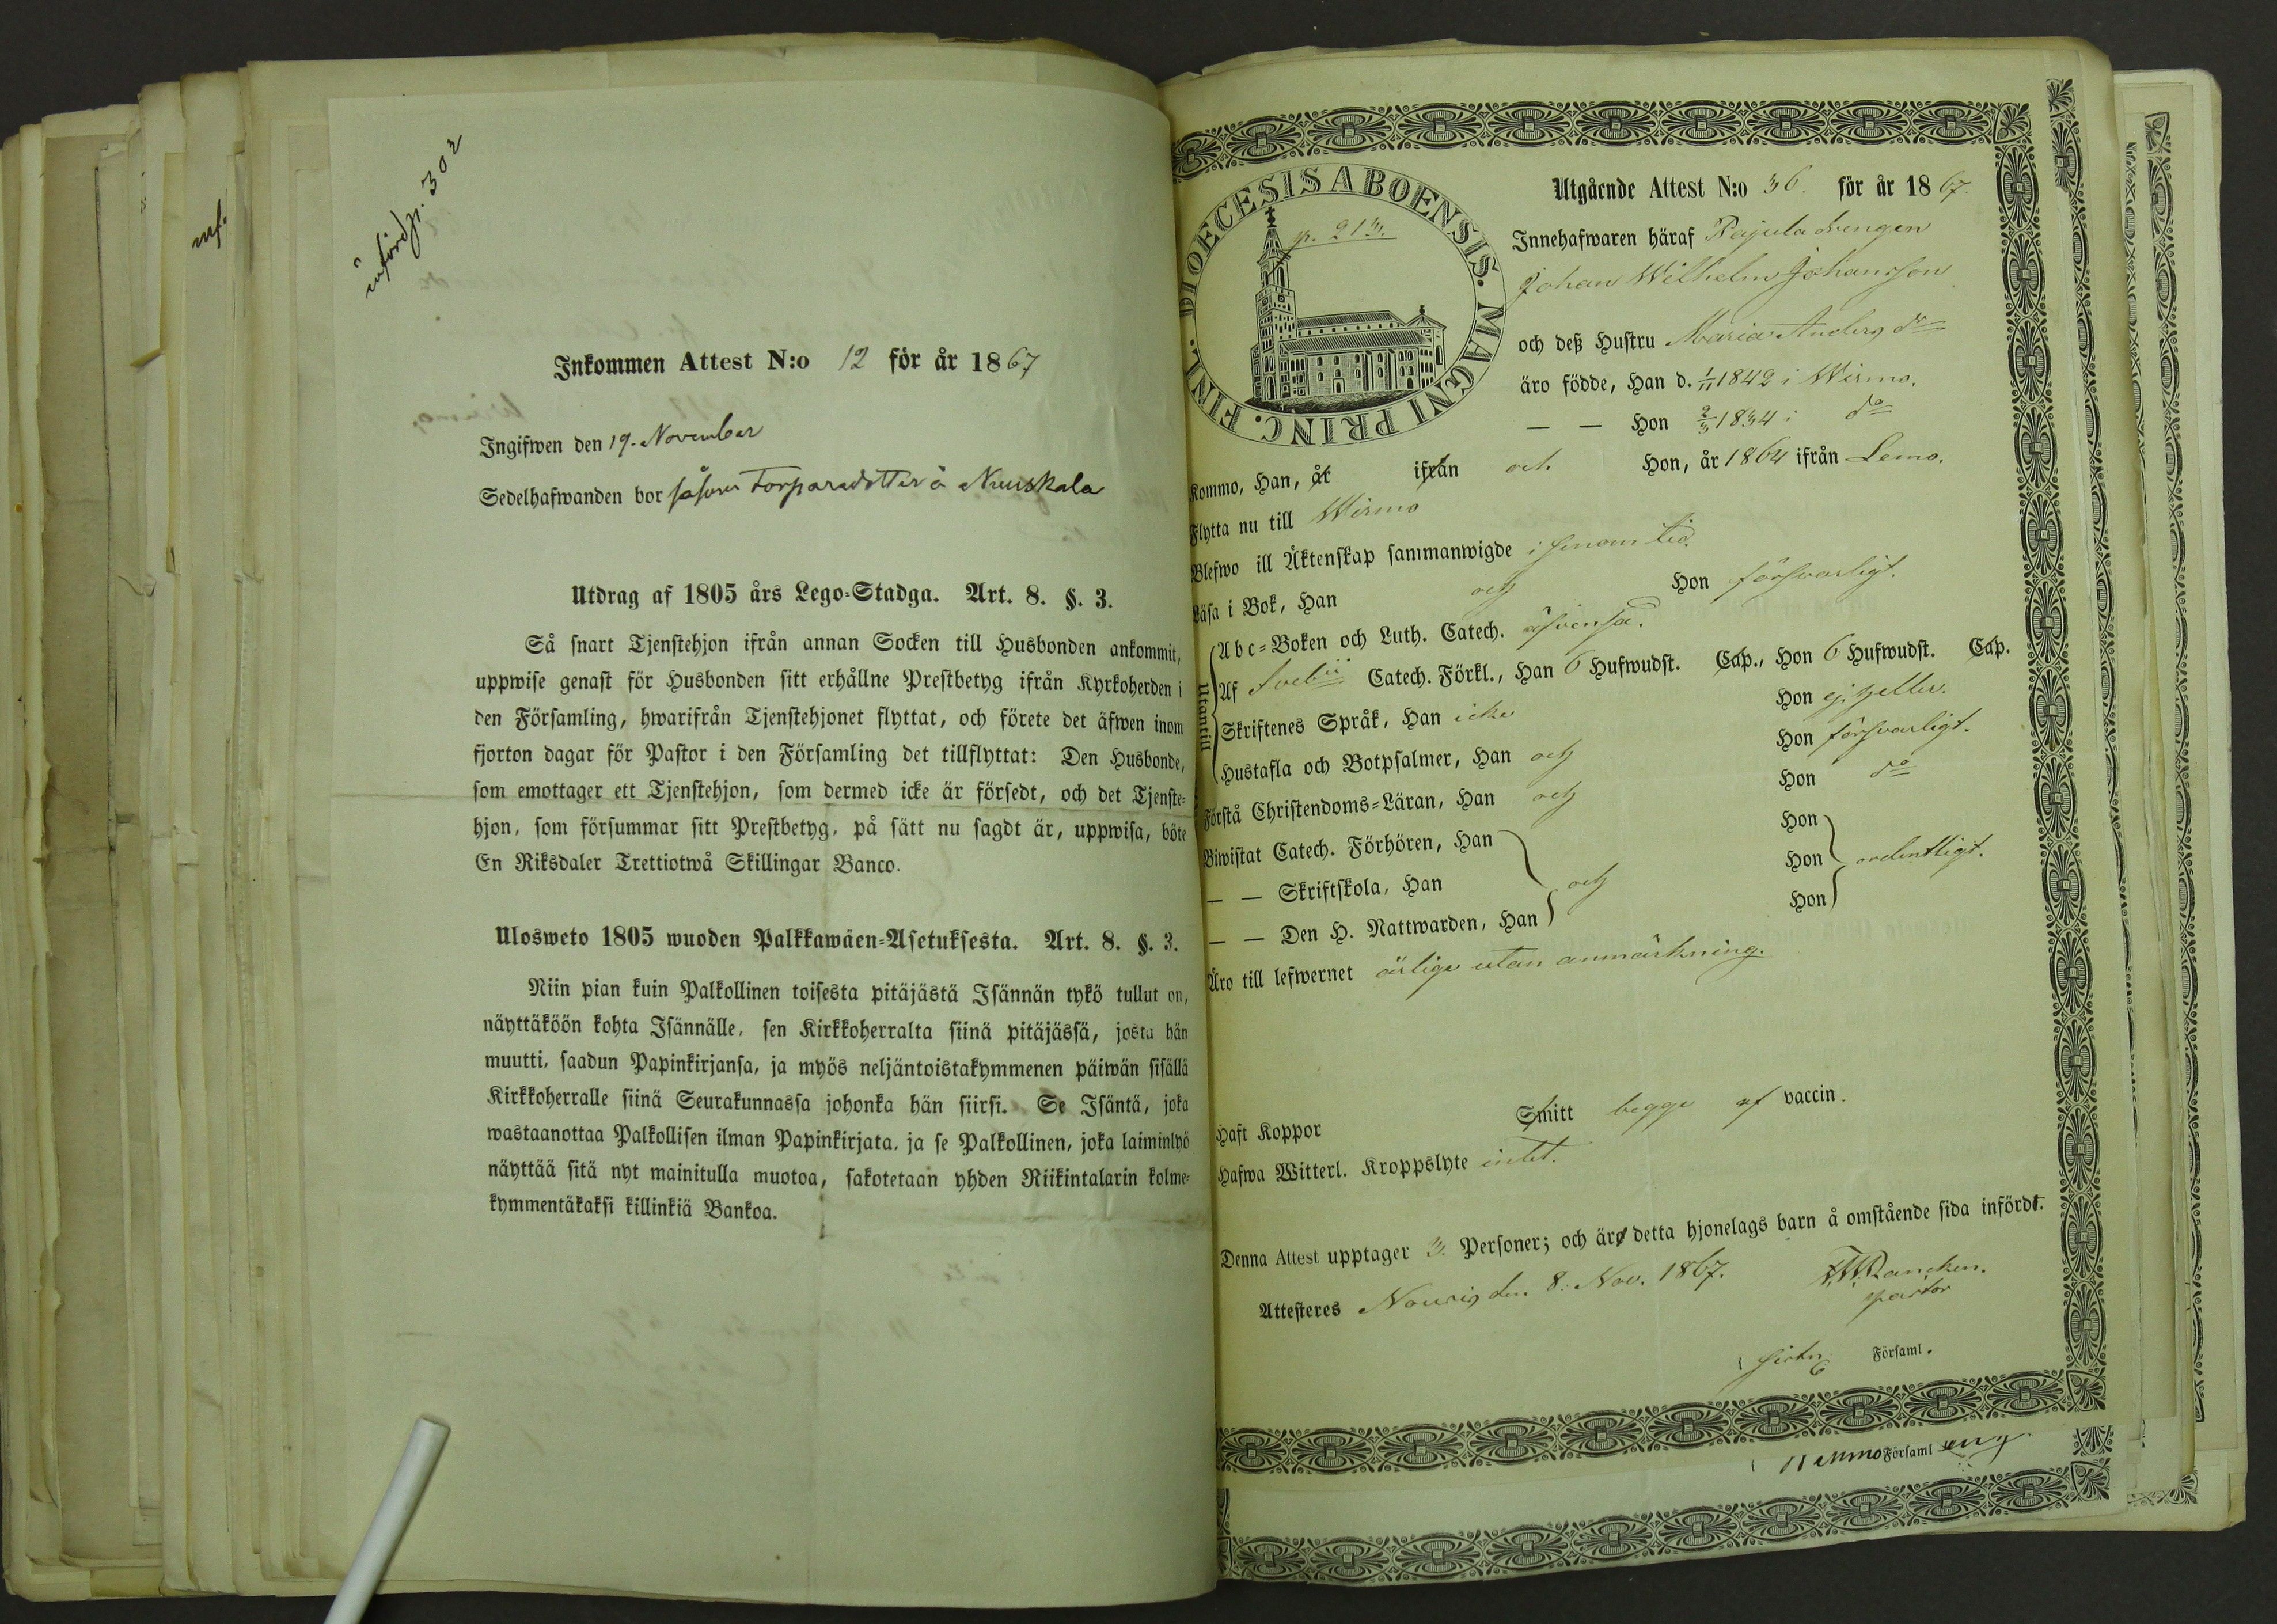 införd p. 302
inf.
Inkommen Attest N:o 12 för år 1867
Ingifwen den 19. November
Sedelhafwanden bor såsom Torparedotter å Nuuskala
Utdrag af 1805 års Lego-Stadga. Art. 8. §. 3.
Så snart Tjenstehjon ifrån annan Socken till Husbonden ankommit,
uppwise genast för Husbonden sitt erhållne Prestbetyg ifrån Kyrkoherden i
den Församling, hwarifrån Tjenstehjonet flyttat, och förete det äfwen inom
fjorton dagar för Pastor i den Församling det tillflyttat: Den Husbonde,
som emottager ett Tjenstehjon, som dermed icke är försedt, och det Tjenste-
hjon, som försummar sitt Prestbetyg, på sätt nu sagdt är, uppwisa, böte
En Riksdaler Trettiotwå Skillingar Banco.
Ulosweto 1805 wuoden Palkkawäen-Asetuksesta. Art. 8. §. 3.
Niin pian kuin Palkollinen toisesta pitäjästä Isännän tykö tullut on,
näyttäköön kohta Isännälle, sen Kirkkoherralta siinä pitäjässä, josta hän
muutti, saadun Papinkirjansa, ja myös neljäntoistakymmenen päiwän sisällä
Kirkkoherralle siinä Seurakunnassa johonka hän siirsi. Se Isäntä, joka
wastaanottaa Palkollisen ilman Papinkirjata, ja se Palkollinen, joka laiminlyö
näyttää sitä nyt mainitulla muotoa, sakotetaan yhden Riikintalarin kolme-
kymmentäkaksi killinkiä Bankoa.
DIOECESIS ABOENSIS. MAGNI PRINC. FINL.
p. 213.
Utgående Attest N:o 36. för år 1867.
Innehafwaren häraf Pajula drengen
Johan Wilhelm Johansson
och deß Hustru Maria Anders dr
äro födde, Han d. 1/11 1842 i Wirmo.
— — Hon 2/3 1834 i do
Kommo, Han, år ifrån och Hon, år 1864 ifrån Lemo.
Flytta nu till Wirmo
Blefwo ill Äktenskap sammanwigde i senom tid.
Läsa i Bok, Han och Hon försvarligt.
Utantill
Abc-Boken och Luth. Catech. äfvenså.
Af Svebii Catech. Förkl., Han 6 Hufwudst. Cap., Hon 6 Hufwudst. Cap.
Skriftenes Språk, Han icke Hon ej heller.
Hustafla och Botpsalmer, Han och Hon försvarligt.
Förstå Christendoms-Läran, Han och Hon do
Biwistat Catech. Förhören, Han Hon
— — Skriftskola, Han och Hon ordentligt.
— — Den H. Nattwarden, Han Hon
Äro till lefwernet ärlige utan anmärkning.
Haft Koppor Smitt begge af vaccin.
Hafwa Witterl. Kroppslyte intet.
Denna Attest upptager 3 Personer; och äro detta hjonelags barn å omstående sida införd.
Attesteres Nousis den 8. Nov. 1867.
pastor
Församl.
Församl